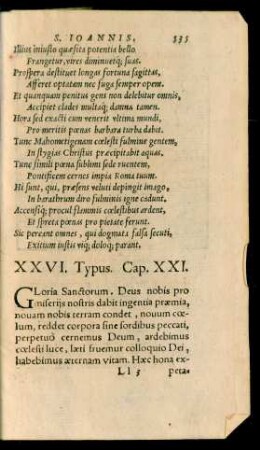 S. IOANNIS. 535
Illius iniusto quæsita potentia bello
Frangetur, vires diminuetq; suas.
Prospera destituet longas fortuna sagittas,
Afferet optatam nec fuga semper opem.
Et quanquam penitus gens non delebitur omnis,
Accipiet clades multaq; damna tamen.
Hora sed exacti cum venerit vltima mundi,
Pro meritis pœnas barbara turba dabit.
Tunc Mahometigenam cœlesti fulmine gentem,
In stygias Christus præcipitabit aquas.
Tunc simili pœna sublimi sede ruentem,
Pontificem cernes impia Roma tuum.
Hi sunt, qui, præsens veluti depingit imago,
In barathrum diro fulminis igne cadunt,
Accensiq; procul flammis cœlestibus ardent,
Et spreta pœnas pro pietate ferunt.
Sic pereant omnes, qui dogmata falsa secuti,
Exitium iustis viq; doloq; parant.
XXVI. Typus. Cap. XXI.
GLoria Sanctorum. Deus nobis pro
miserijs nostris dabit ingentia præmia,
nouam nobis terram condet, nouum cœ-
lum, reddet corpora sine sordibus peccati,
perpetuò cernemus Deum, ardebimus
cœlesti luce, læti fruemur colloquio Dei,
habebimus æternam vitam. Hæc bona ex-
Ll 3 peta-